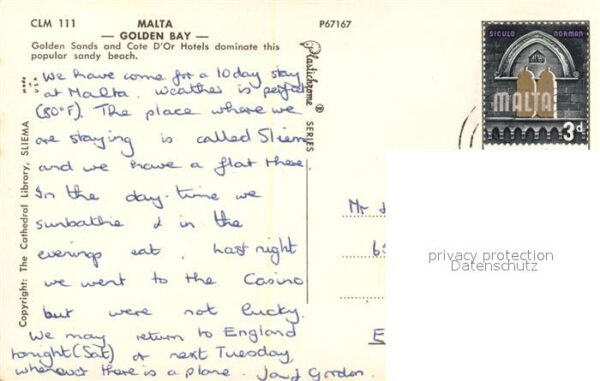 CLM 111 MALTA P67167
— GOLDEN BAY —
Golden Sands and Cote D'Or Hotels dominate this
popular sandy beach.
MADE IN U.S.A.
Copyright: The Cathedral Library, SLIEMA
Plastichrome ® SERIES
SICULO NORMAN
MALTA
3d
We have come for a 10 day stay
at Malta. Weather is perfect
(80°F). The place where we
are staying is called Sliema
and we have a flat there.
In the day-time we
sunbathe & in the
evenings eat. Last night
we went to the Casino
but were not lucky.
We may return to England
tonight (Sat) or next Tuesday,
whenever there is a plane. Gordon.
Mr
E
privacy protection
Datenschutz